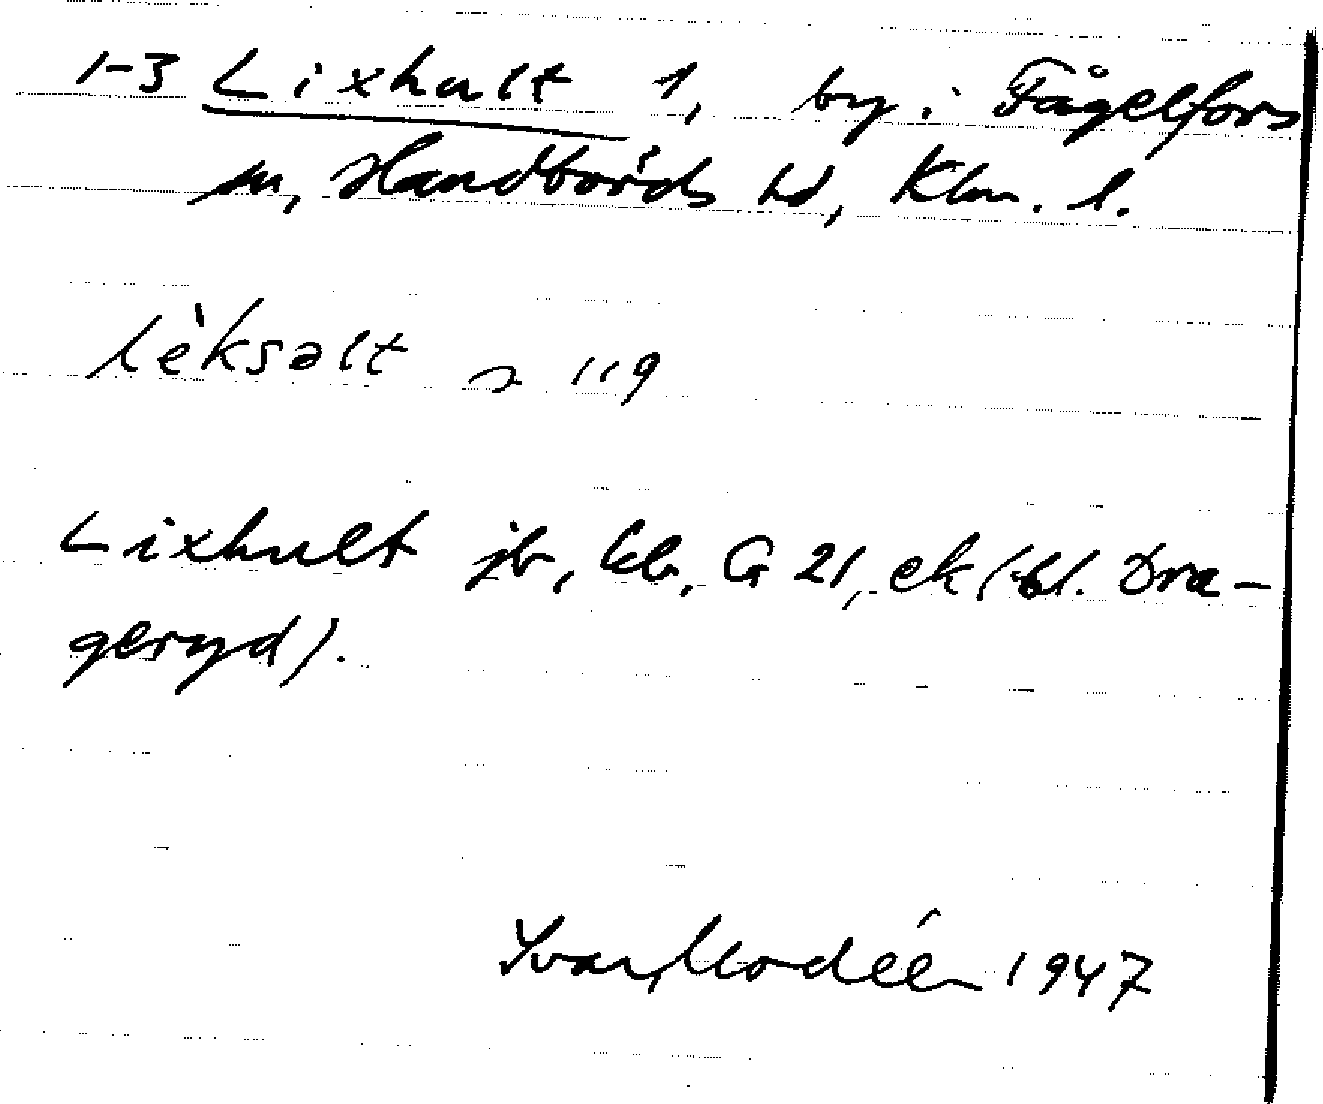 1-3 Lixhult 1, by i Fågelfors
sn, Handbörds hd, Klm. l.
lèksəlt ~ 119
Lixhult jb, kb, G 21, ek (bl. Dra-
geryd).
Ivar Modéer 1947